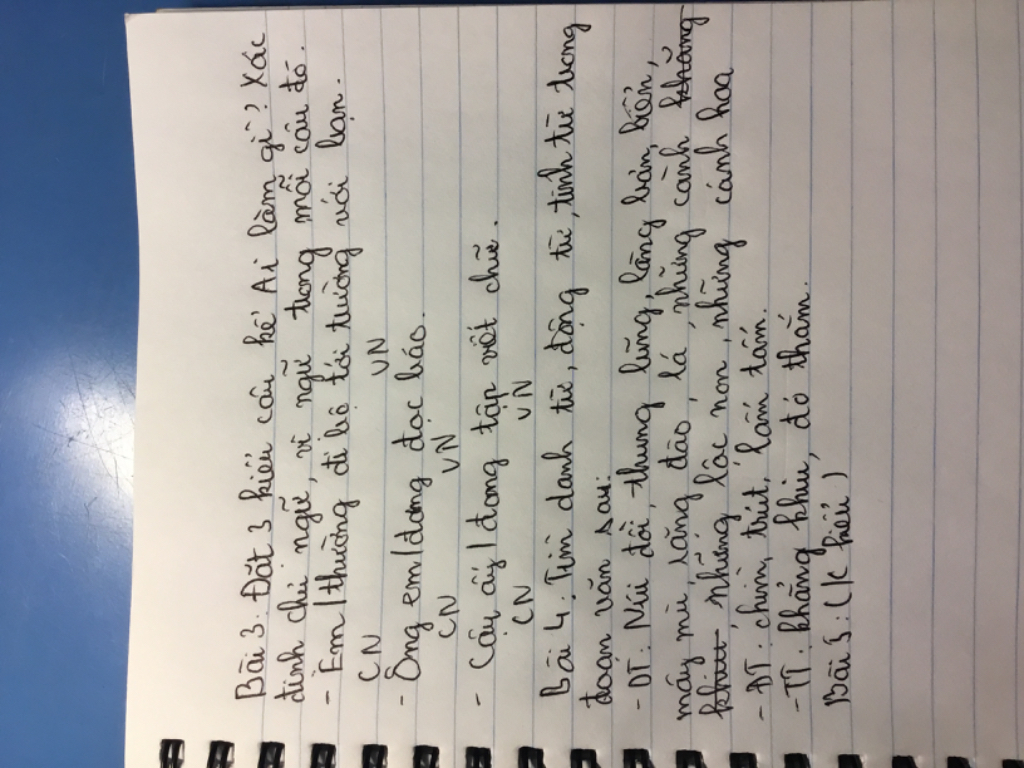 Bài 3. Đặt 3 kiểu câu kể Ai làm gì? Xác
định chủ ngữ, vị ngữ trong mỗi câu đó.
- Em / thường đi bộ tới trường với bạn.
CN VN
- Ông em / đang đọc báo.
CN VN
- Cậu ấy / đang tập viết chữ.
CN VN
Bài 4. Tìm danh từ, động từ, tính từ trong
đoạn văn sau:
- DT: Núi đồi, thung lũng, làng bản, biển,
mây mù, rặng đào, lá, những cành khẳng
khiu những lộc non, những cánh hoa
- ĐT: chìm, trút, lấm tấm.
- TT: khẳng khiu, đỏ thắm.
Bài 5: (K hiểu)